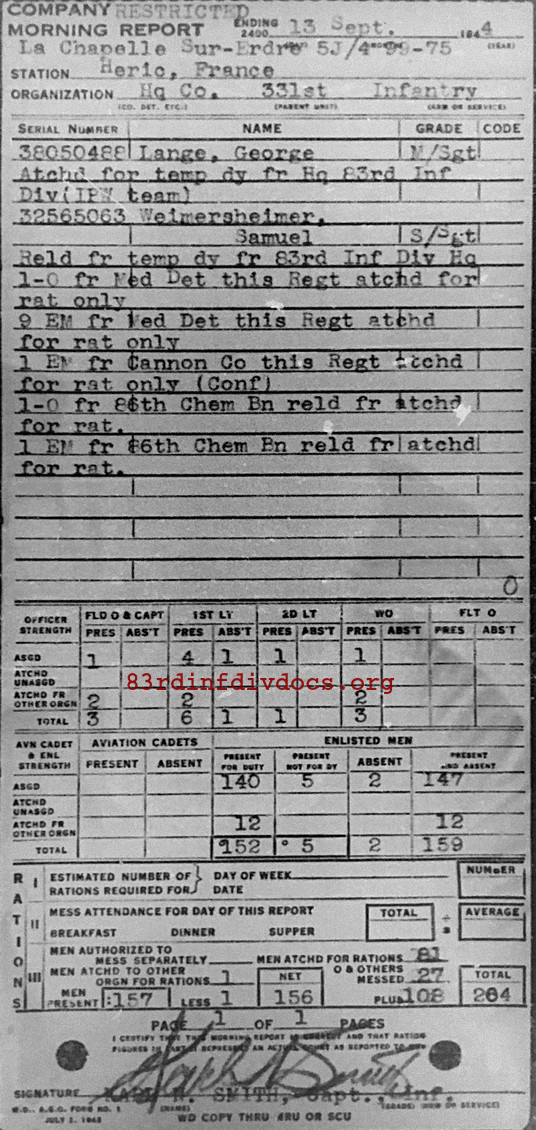 COMPANY RESTRICTED
MORNING REPORT ENDING 2400 13 Sept. 1944 (YEAR)
La Chapelle Sur-Erdre 5J/4 99-75
STATION Heric, France
ORGANIZATION Hq Co. 331st Infantry
(CO. DET. ETC.) (PARENT UNIT) (ARM OR SERVICE)
SERIAL NUMBER NAME GRADE CODE
38050488 Lange, George M/Sgt
Atchd for temp dy fr Hq 83rd Inf
Div(IPW team)
32565063 Weimersheimer,
Samuel S/Sgt
Reld fr temp dy fr 83rd Inf Div Hq
1-O fr Med Det this Regt atchd for
rat only
9 EM fr Med Det this Regt atchd
for rat only
1 EM fr Cannon Co this Regt atchd
for rat only (Conf)
1-O fr 86th Chem Bn reld fr atchd
for rat.
1 EM fr 86th Chem Bn reld fr atchd
for rat.
O
OFFICER STRENGTH FLD O & CAPT 1ST LT 2D LT WO FLT O
PRES ABS'T PRES ABS'T PRES ABS'T PRES ABS'T PRES ABS'T
ASGD 1 4 1 1 1
ATCHD UNASGD
83rdinfdivdocs.org
ATCHD FR OTHER ORGN 2 2 2
TOTAL 3 6 1 1 3
AVN CADET & ENL STRENGTH AVIATION CADETS ENLISTED MEN
PRESENT ABSENT PRESENT FOR DUTY PRESENT NOT FOR DY ABSENT PRESENT AND ABSENT
ASGD 140 5 2 147
ATCHD UNASGD
ATCHD FR OTHER ORGN 12 12
TOTAL 152 5 2 159
RATIONS
I ESTIMATED NUMBER OF RATIONS REQUIRED FOR } DAY OF WEEK DATE NUMBER
II MESS ATTENDANCE FOR DAY OF THIS REPORT TOTAL ÷ AVERAGE
BREAKFAST DINNER SUPPER
III MEN AUTHORIZED TO MESS SEPARATELY MEN ATCHD FOR RATIONS 81
MEN ATCHD TO OTHER ORGN FOR RATIONS 1 NET O & OTHERS MESSED 27 TOTAL
MEN PRESENT 157 LESS 1 156 PLUS 108 264
PAGE 1 OF 1 PAGES
I CERTIFY THAT THIS MORNING REPORT IS CORRECT AND THAT RATION
FIGURES IN PART III REPRESENT AN ACTUAL COUNT AS REPORTED TO
SIGNATURE SMITH, Capt., Inf.
(NAME) (GRADE) (ARM OR SERVICE)
W.D., A.G.O. FORM NO. 1
JULY 1, 1943 WD COPY THRU ARU OR SCU